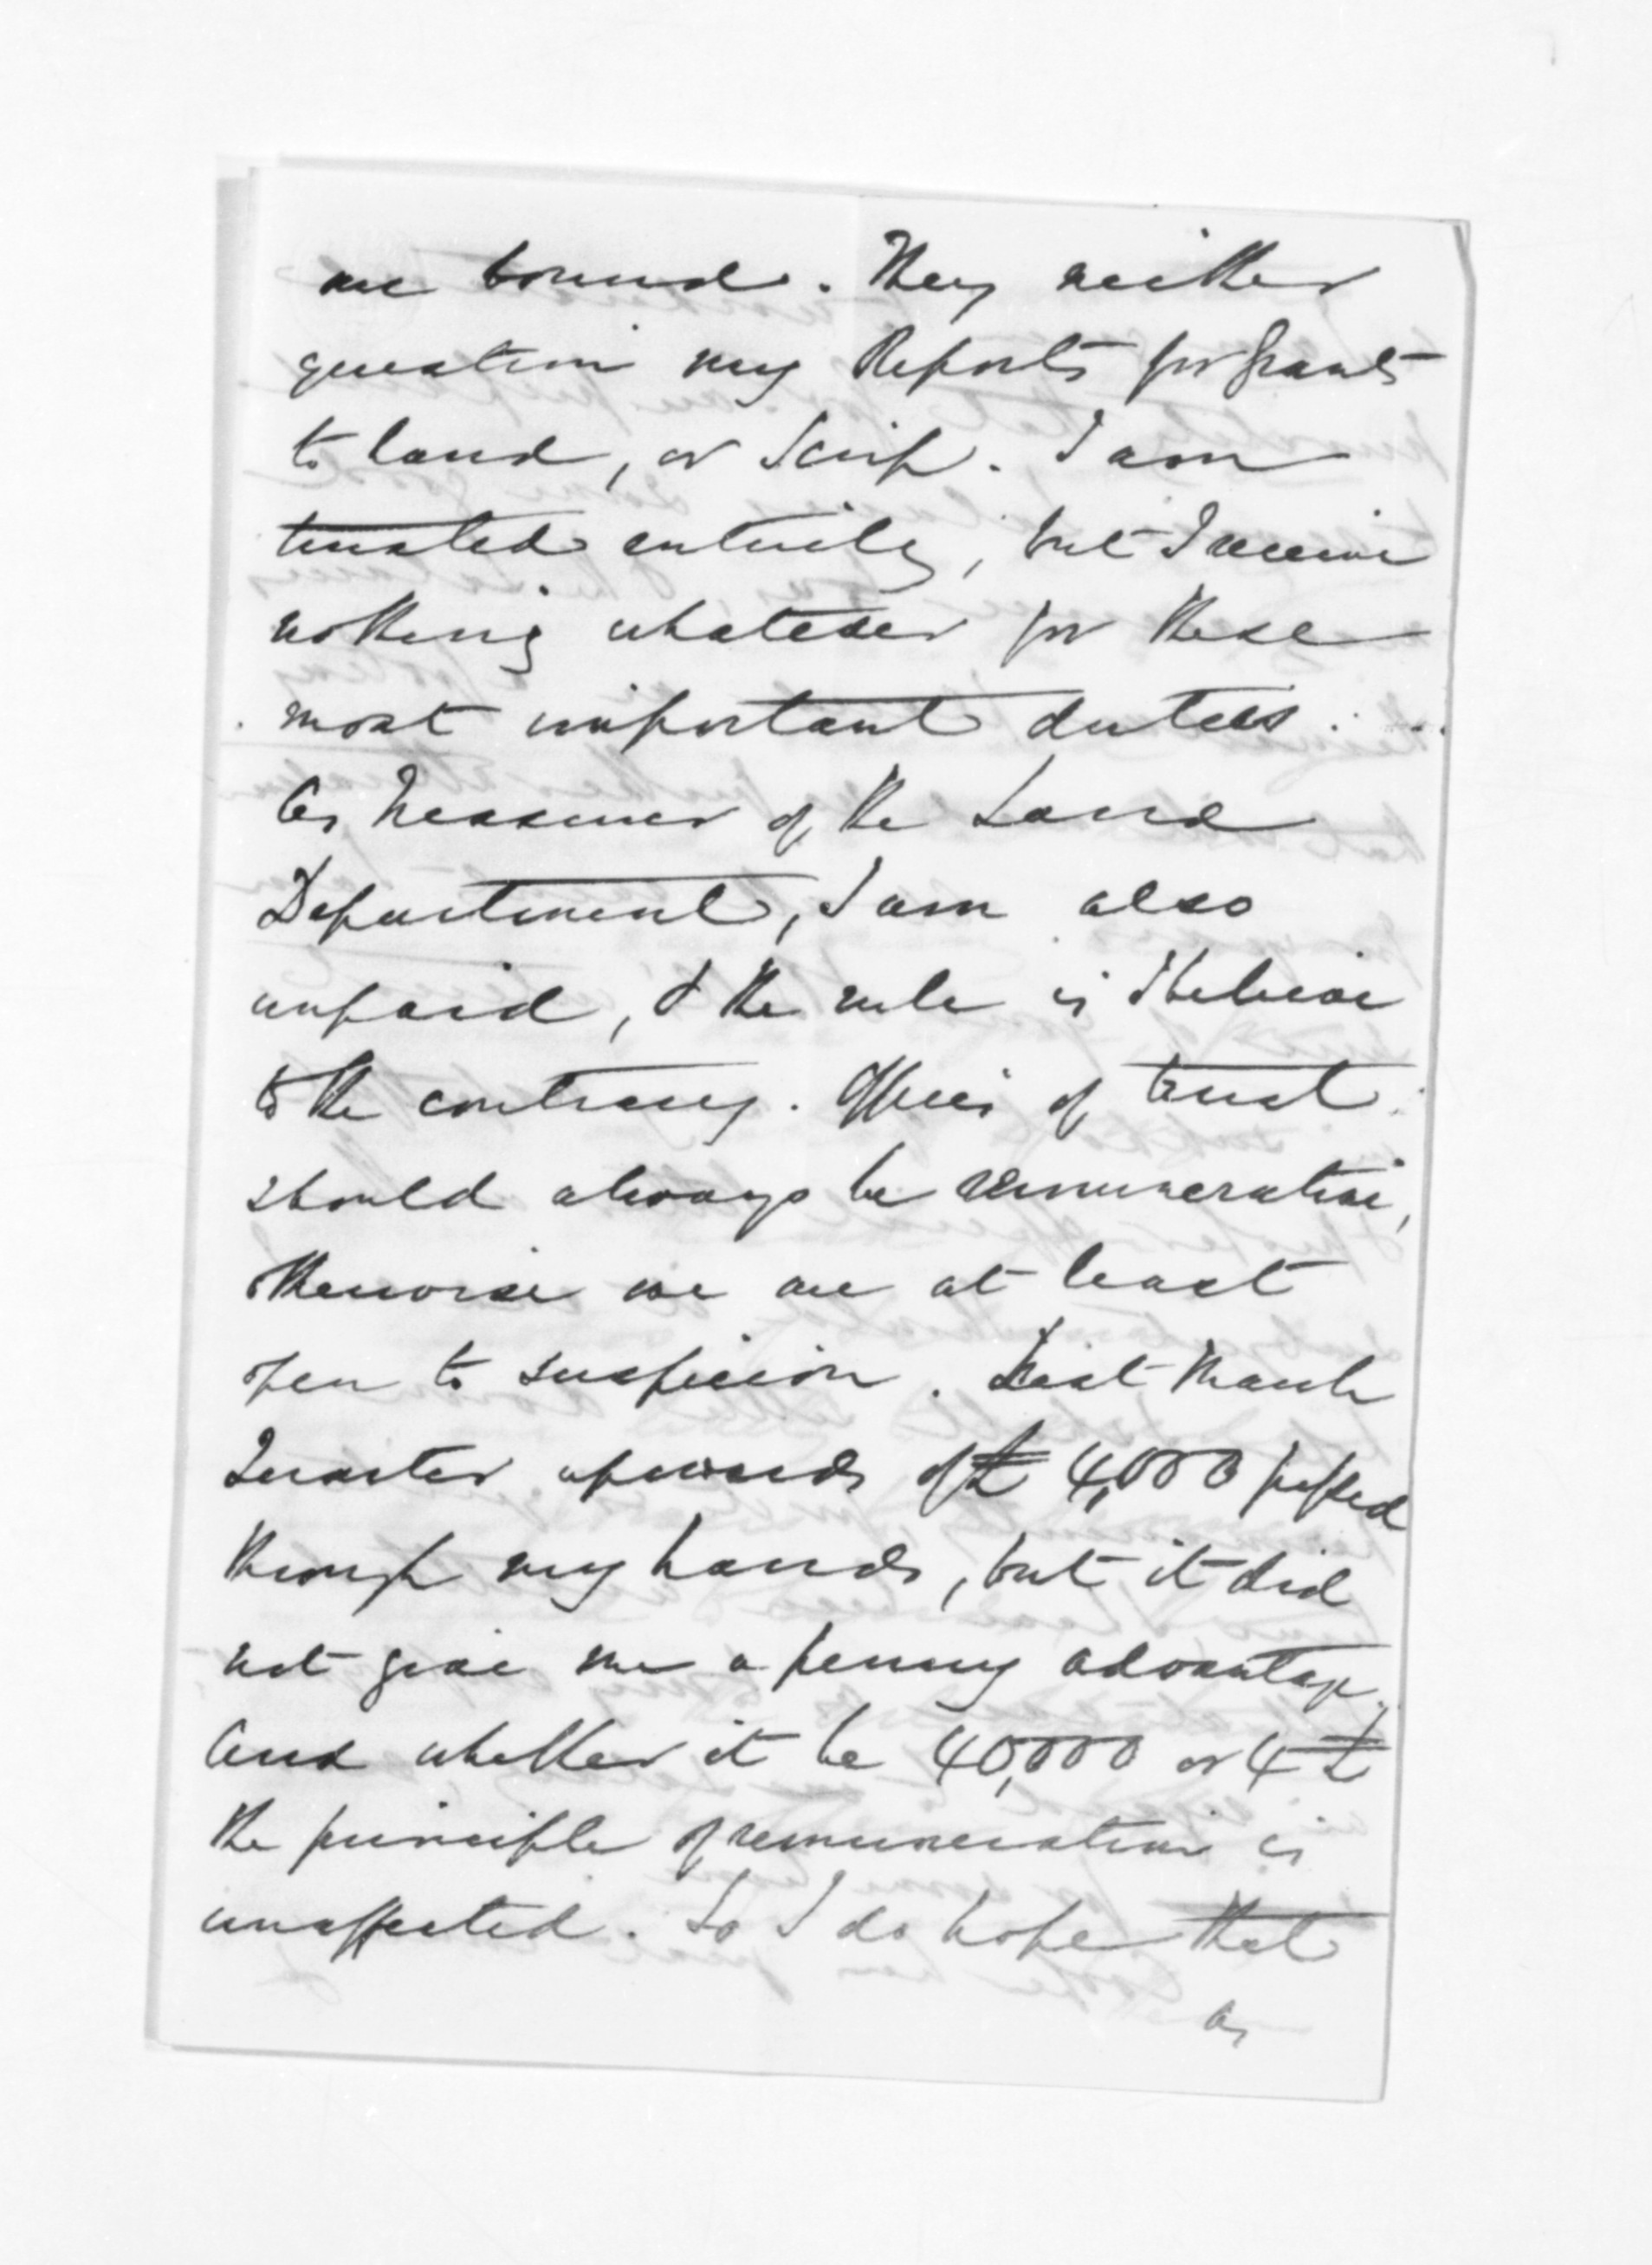 are bound. They neither
question my Reports for Grants
to land, or Scrip. I am
trusted entirely, but I receive
nothing whatever for these
most important duties.
As Treasurer of the Land
Department, I am also
unpaid, & the rule is I believe
to the contrary. Offices of trust
should always be remunerative,
otherwise we are at least
open to suspicion. Last March
Quarter upwards of £ 4,000 passed
through my hands, but it did
not give me a penny advantage.
And whether it be 40,000 or 4 £
the principle of remuneration is
unaffected. So I do hope that
as